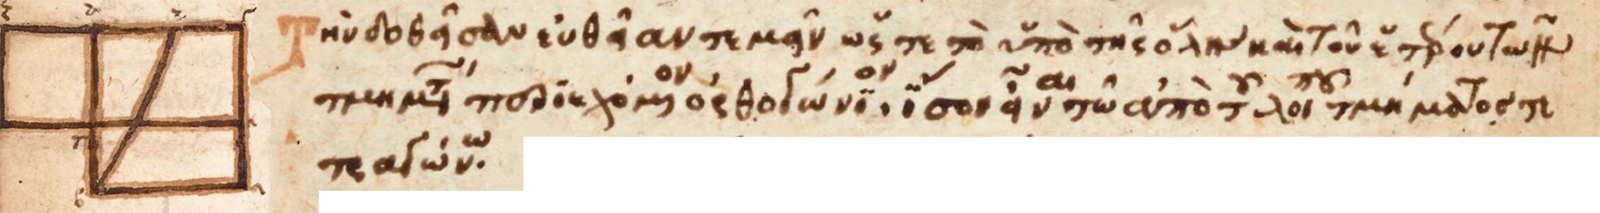 Τὴν δοθεῖσαν εὐθεῖαν τεμεῖν ὥστε τὸ ὑπὸ τῆς ὅλης καὶ τοῦ ἑτέρου τῶν
τμημάτων περιεχόμενον ὀρθογώνιον ἴσον εἶναι τῷ ἀπὸ τοῦ λοιποῦ τμήματος τε
τραγώνῳ.